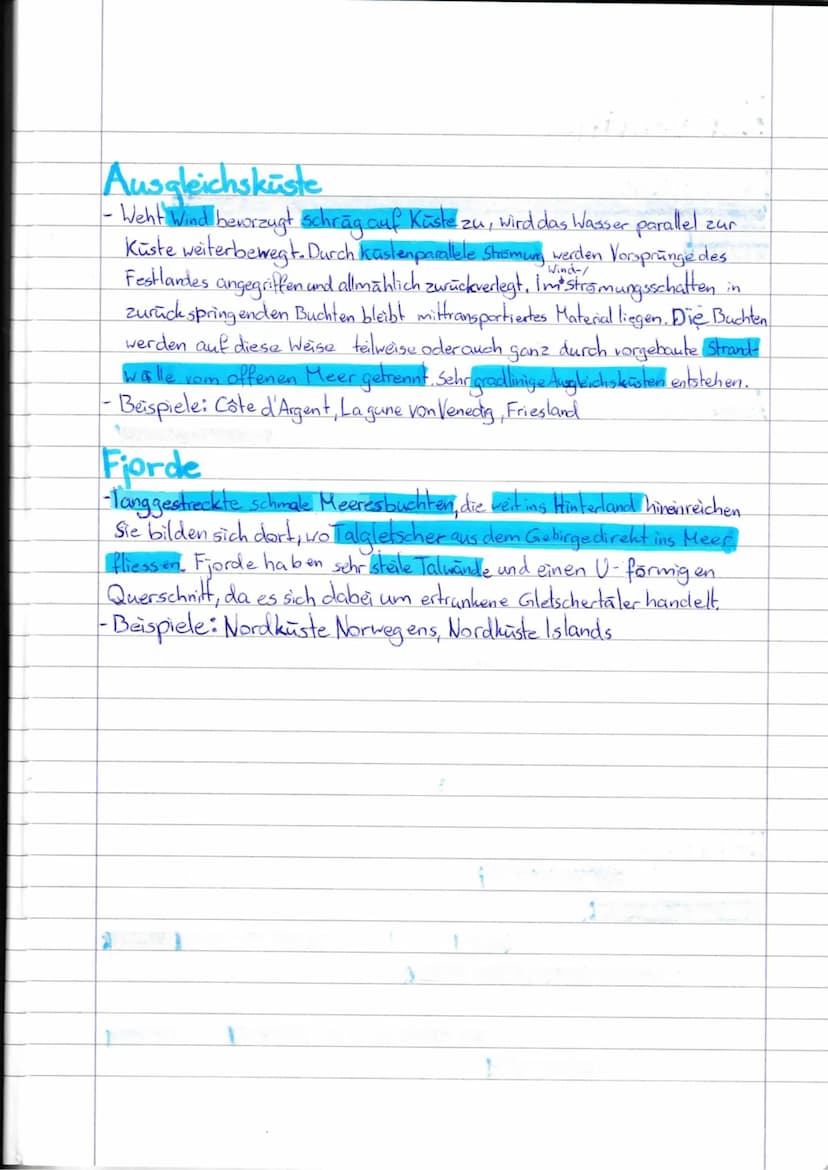 Ausgleichsküste
- Weht Wind bevorzugt schräg auf Küste zu, wird das Wasser parallel zur
Küste weiterbewegt. Durch küstenparallele Strömung werden Vorsprünge des
Festlandes angegriffen und allmählich zurückverlegt. Im Wind-/Strömungsschatten in
zurückspringenden Buchten bleibt mittransportiertes Material liegen. Die Buchten
werden auf diese Weise teilweise oder auch ganz durch vorgebaute Strand-
wälle vom offenen Meer getrennt. Sehr gradlinige Augleichsküsten entstehen.
- Beispiele: Côte d'Argent, Lagune von Venedig, Friesland
Fjorde
- langgestreckte schmale Meeresbuchten, die weit ins Hinterland hineinreichen
Sie bilden sich dort, wo Talgletscher aus dem Gebirge direkt ins Meer
fliessen. Fjorde haben sehr steile Talwände und einen U-förmigen
Querschnitt, da es sich dabei um ertrunkene Gletschertäler handelt.
- Beispiele: Nordküste Norwegens, Nordküste Islands